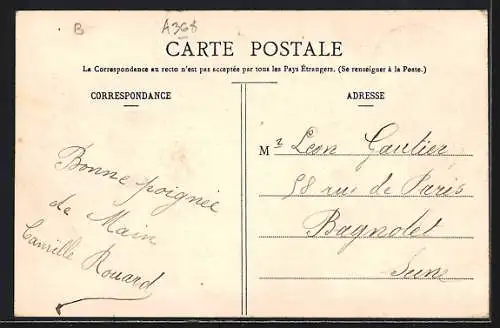 B
A368
CARTE POSTALE
La Correspondance au recto n'est pas acceptée par tous les Pays Étrangers. (Se renseigner à la Poste.)
CORRESPONDANCE
Bonne poignée
de Main
Camille Rouard
ADRESSE
Mr Leon Gautier
58 rue de Paris
Bagnolet
Seine